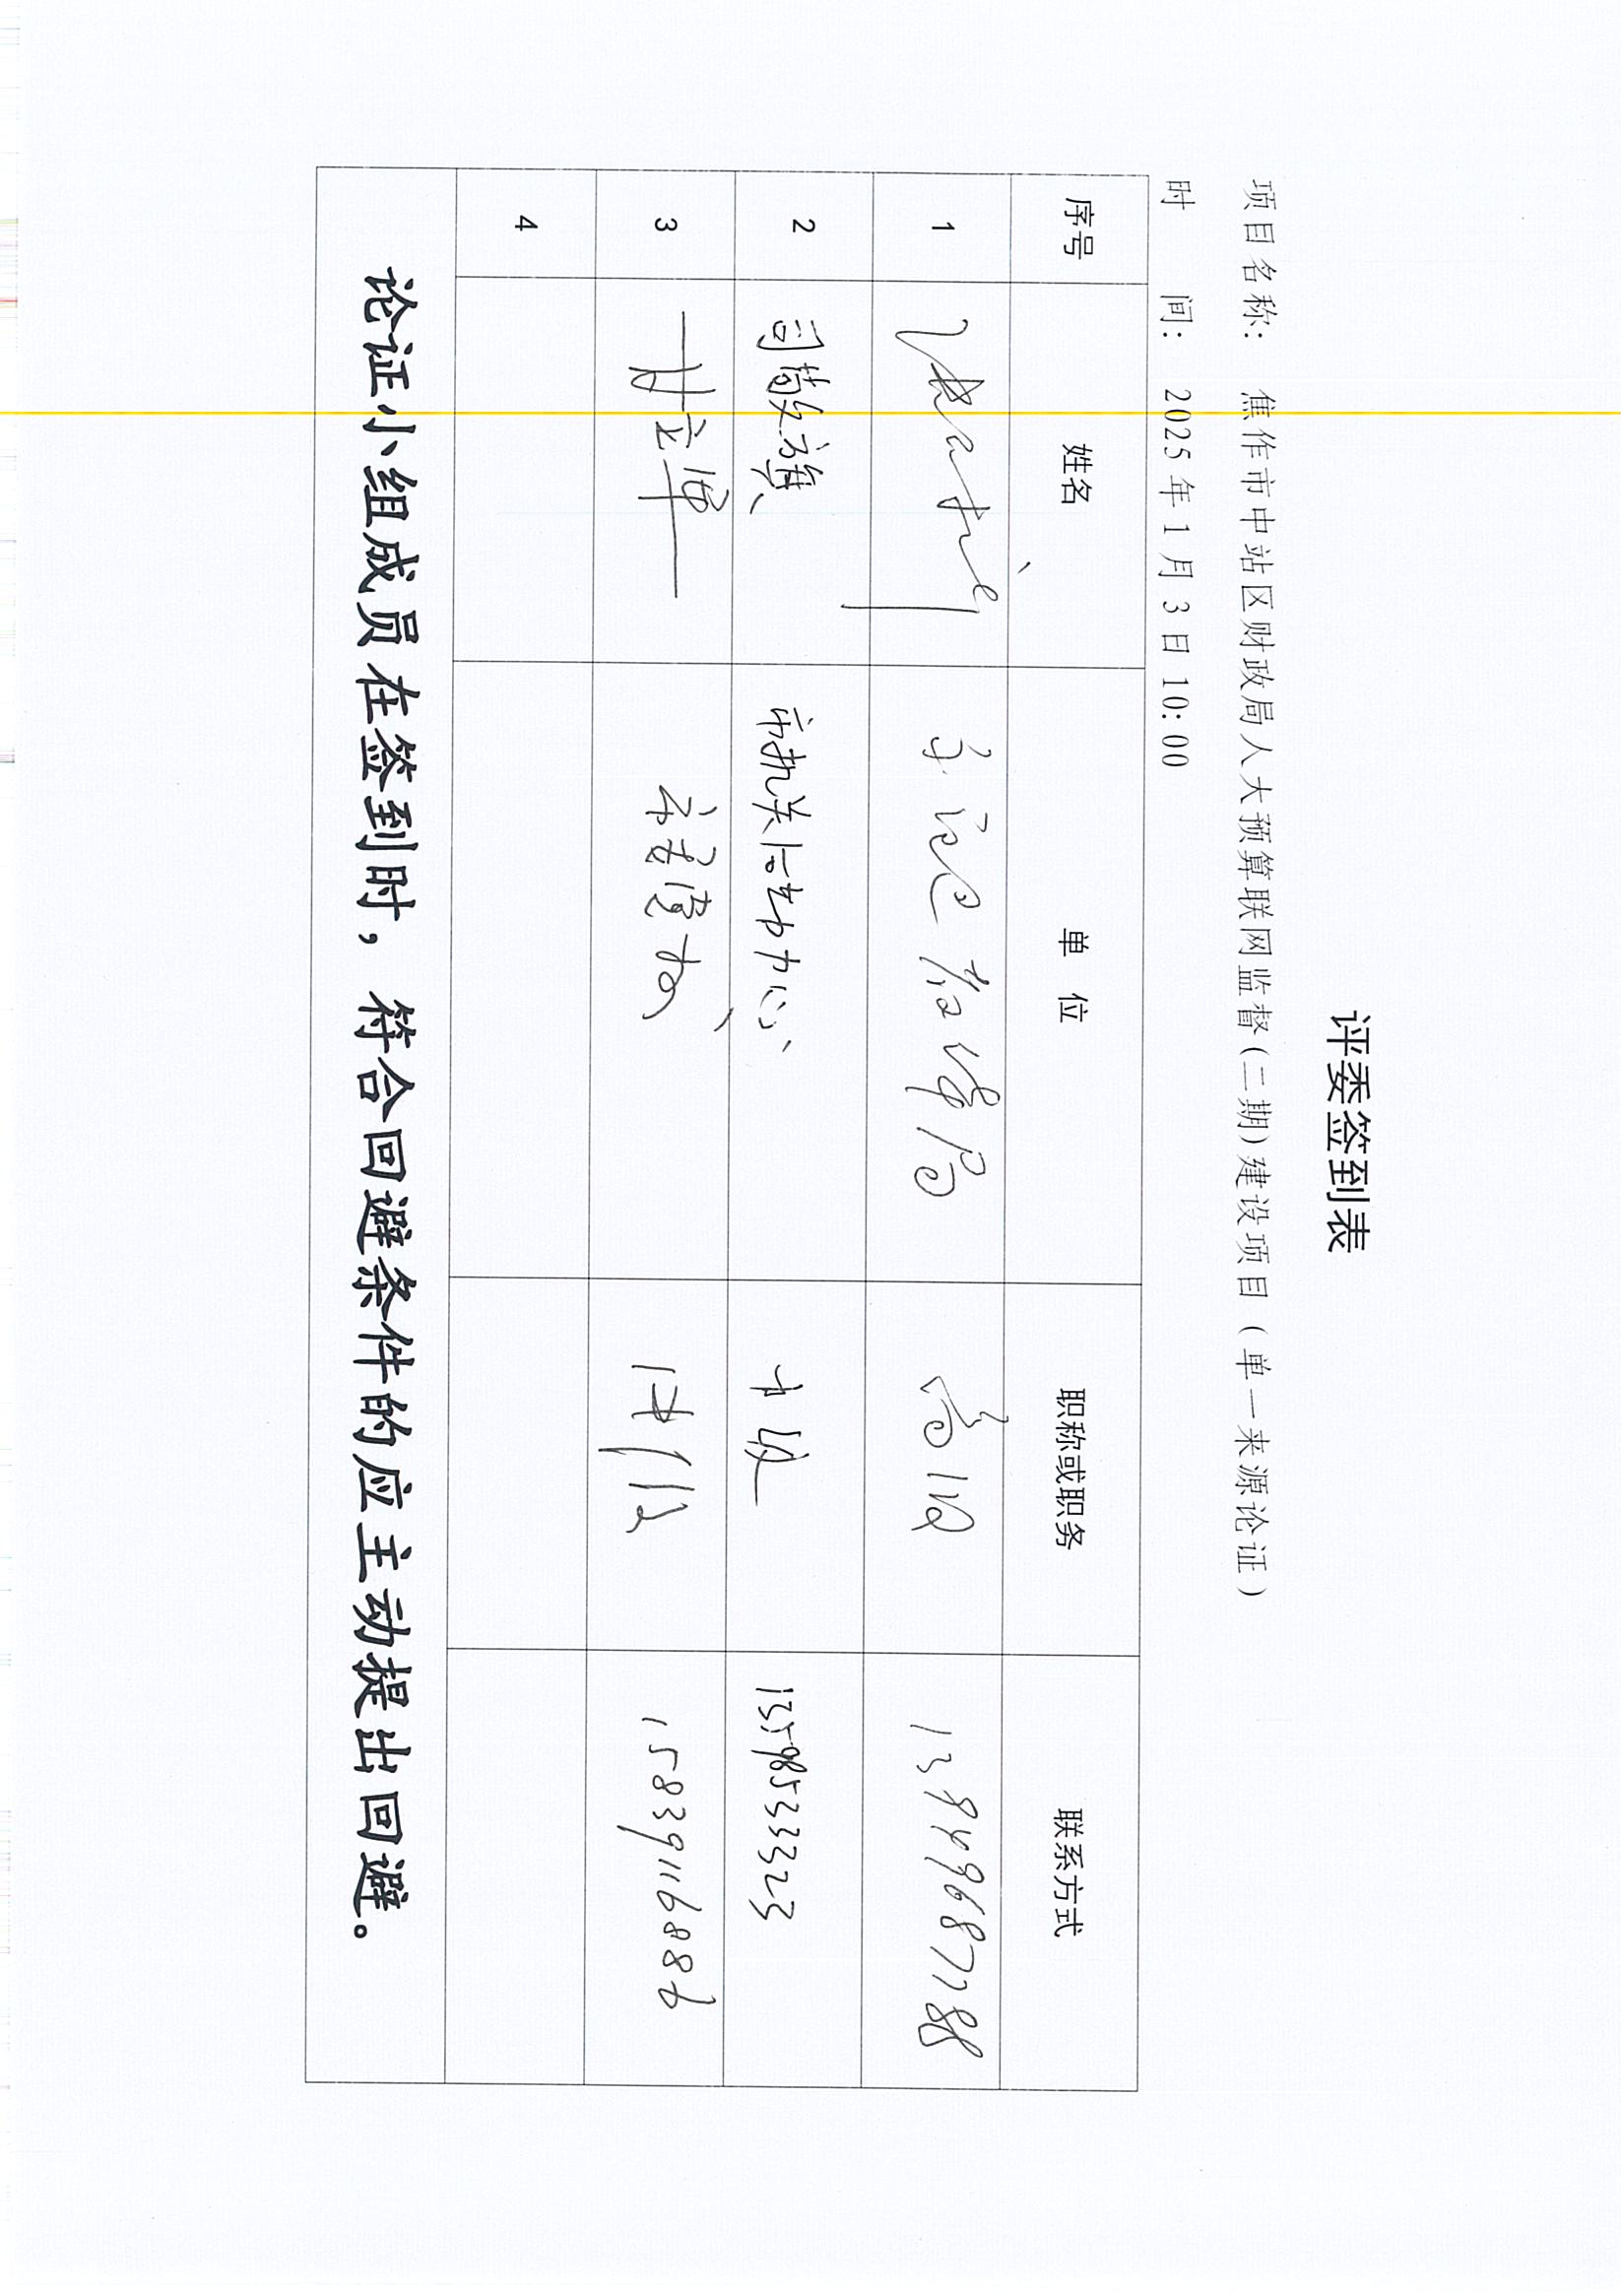 评委签到表
项目名称: 焦作市中站区财政局人大预算联网监督(二期)建设项目(单一来源论证)
时 间: 2025年1月3日10:00
序号 姓名 单 位 职称或职务 联系方式
1 高级
2 市机关 中心 中级 13598533323
3 15839116886
4
论证小组成员在签到时，符合回避条件的应主动提出回避。